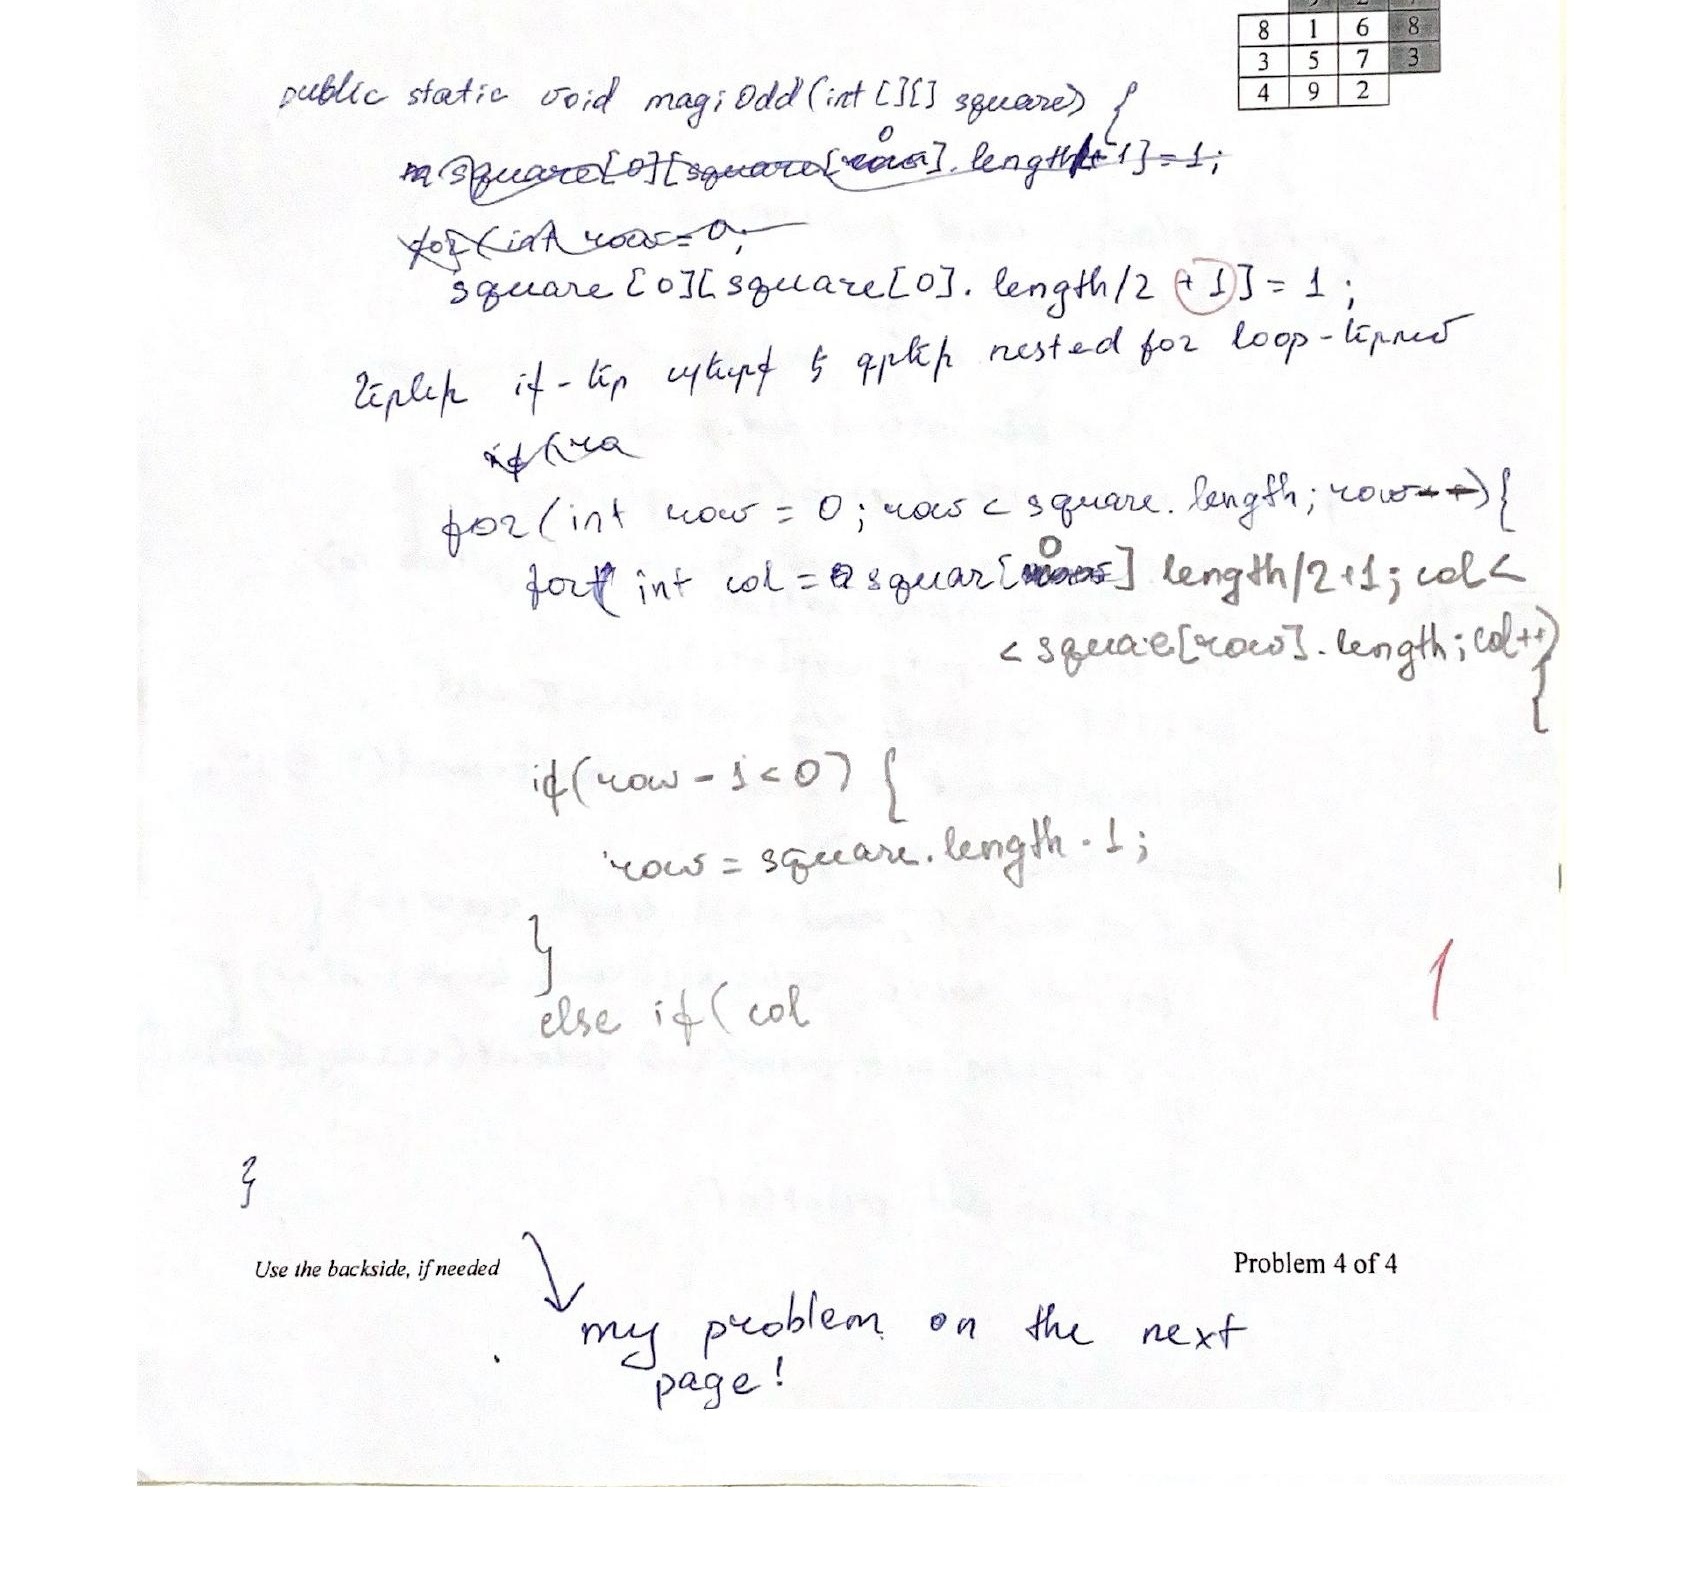 8 1 6 8
3 5 7 3
4 9 2
public static void magiOdd(int [][] square) {
square[0][square[0].length/2 + 1] = 1;
if - nested for loop -
if(ra
for(int row = 0; row < square.length; row++){
for( int col = squar[0] length/2+1; col <
< square[row].length; col++)
{
if(row - 1 < 0) {
row = square.length - 1;
}
else if( col
1
}
Use the backside, if needed
Problem 4 of 4
my problem on the next
page!